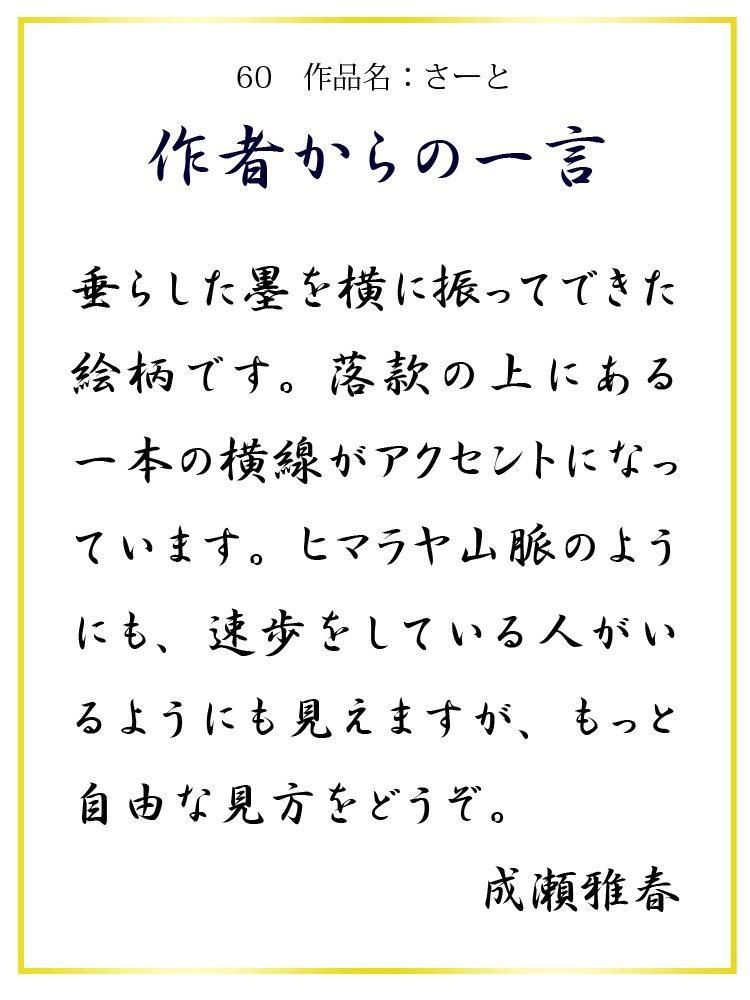 60　作品名：さーと
作者からの一言
垂らした墨を横に振ってできた
絵柄です。落款の上にある
一本の横線がアクセントになっ
ています。ヒマラヤ山脈のよう
にも、速歩をしている人がい
るようにも見えますが、もっと
自由な見方をどうぞ。
成瀬雅春